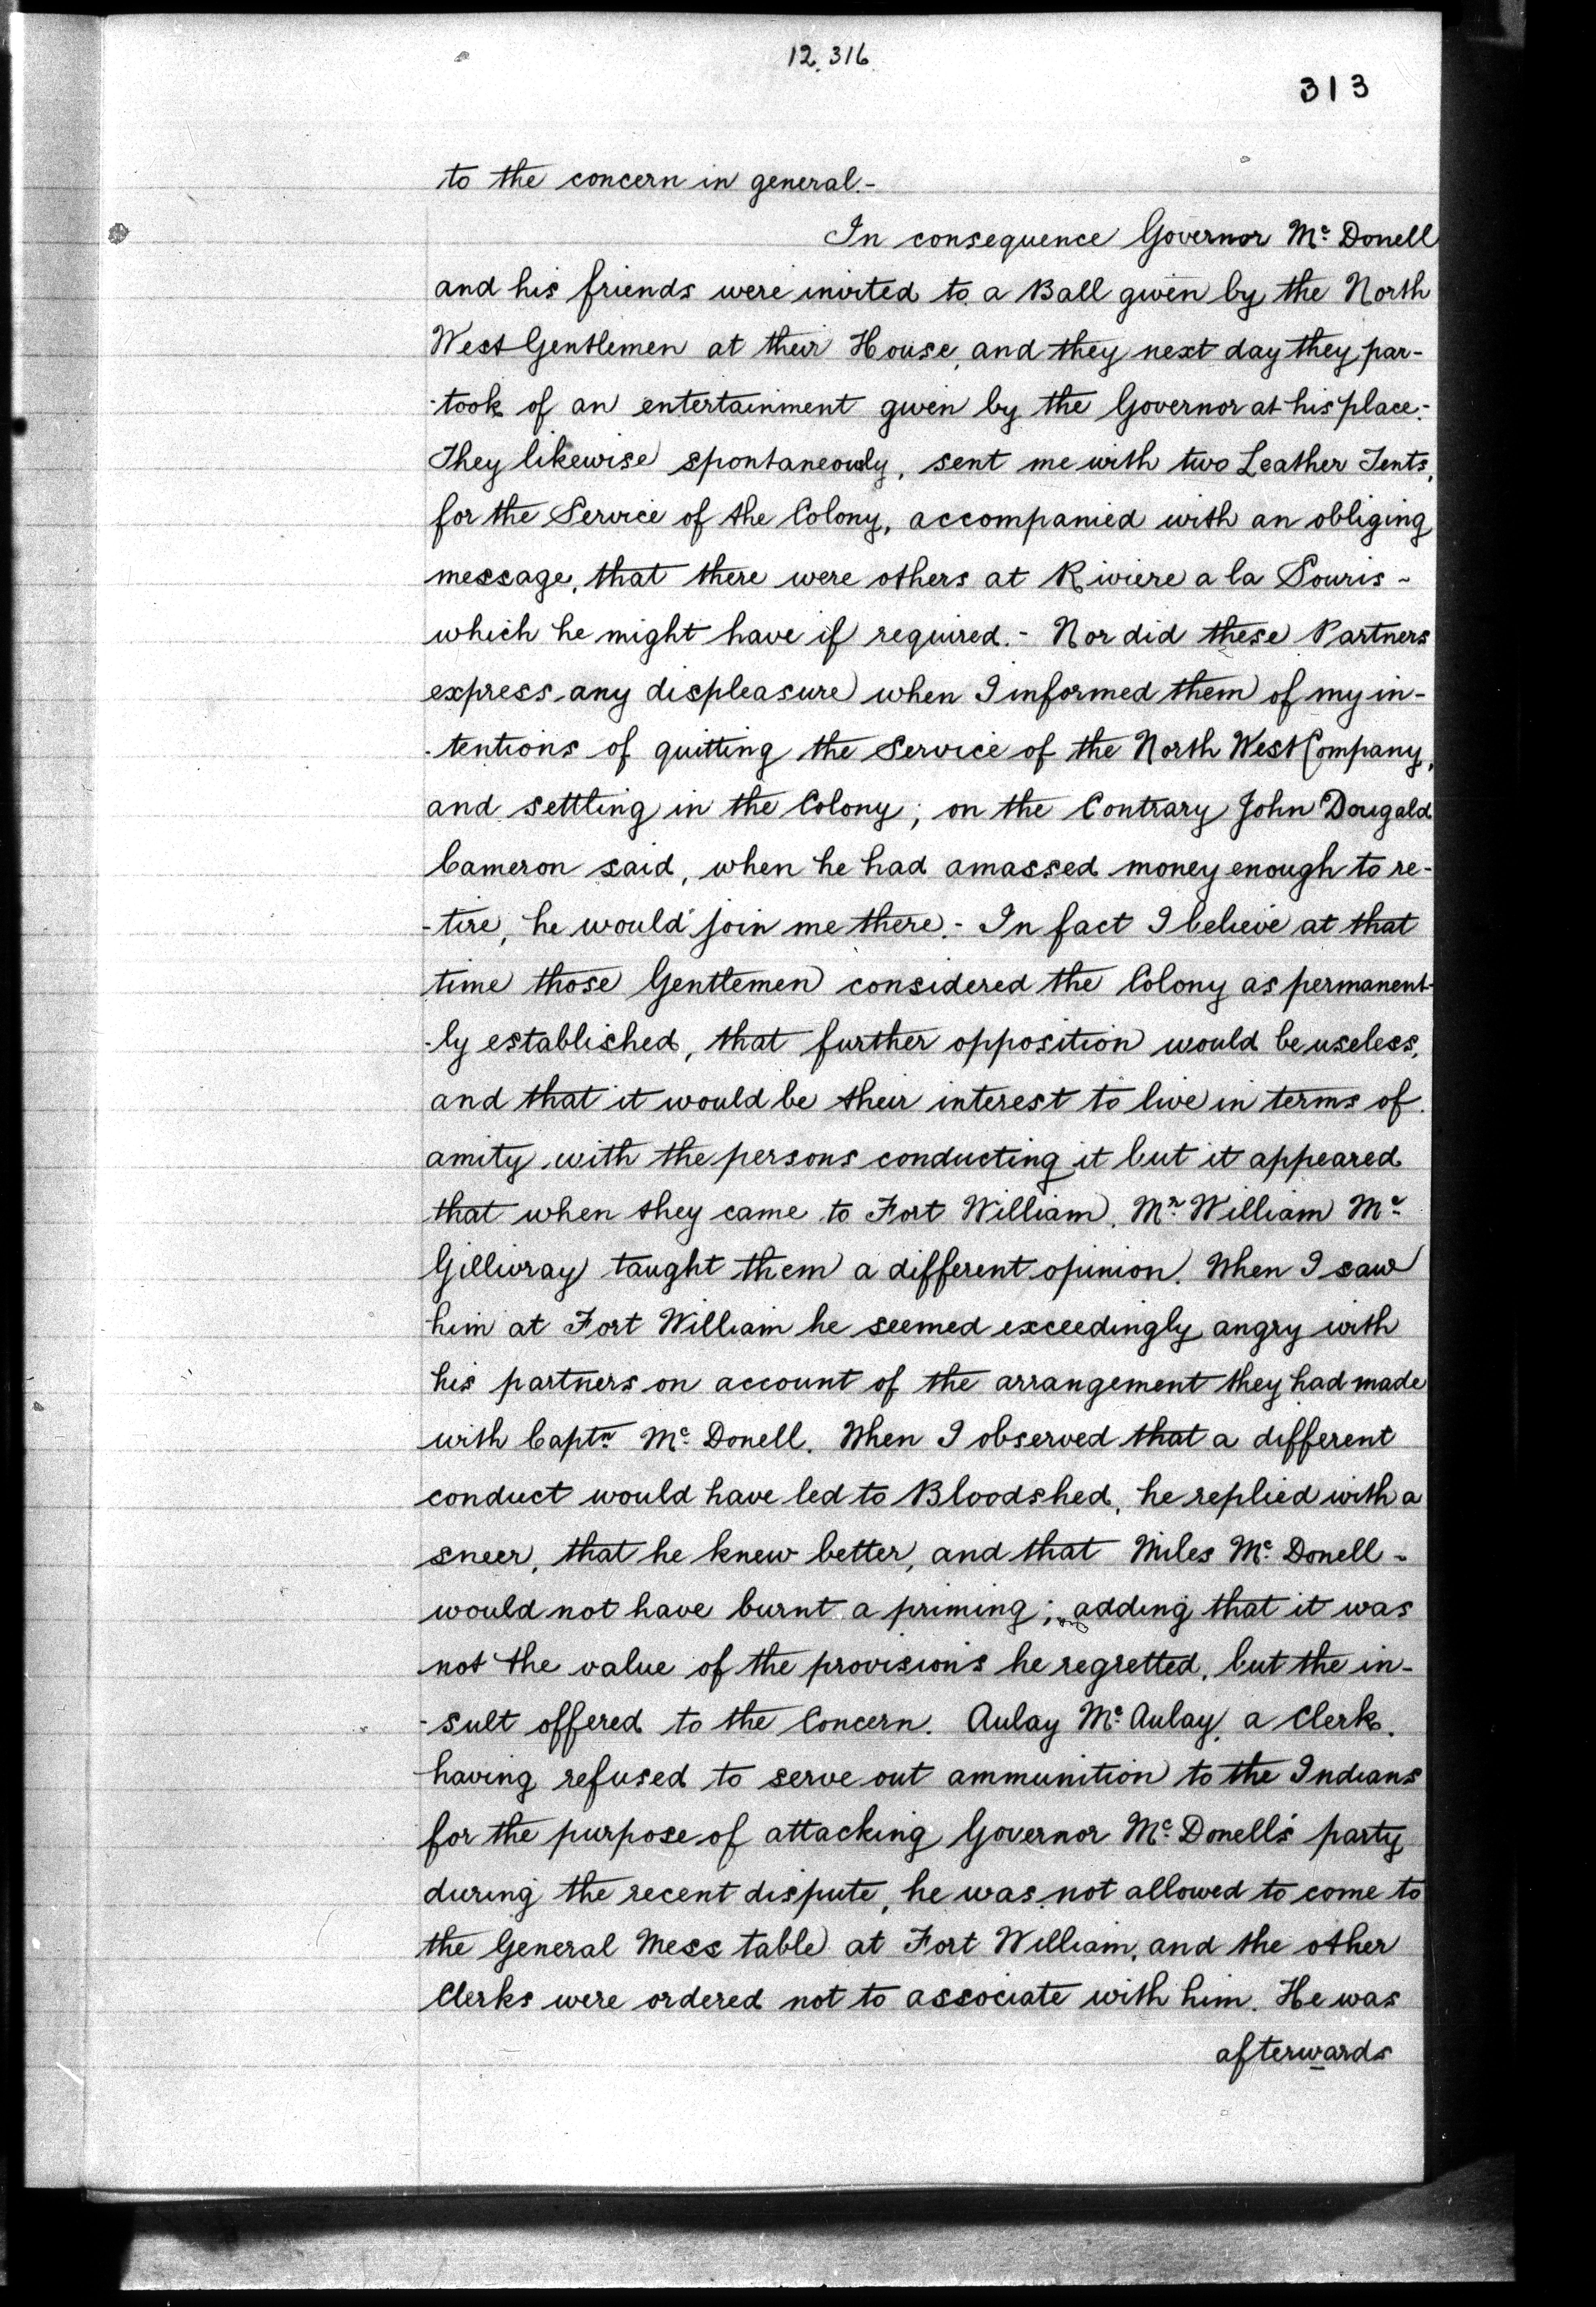 12.316
313
to the concern in general.-
In consequence Governor Mc Donell
and his friends were invited to a Ball given by the North
West Gentlemen at their House, and they next day they par-
-took of an entertainment given by the Governor at his place:-
They likewise spontaneously, sent me with two Leather Tents,
for the Service of the Colony, accompanied with an obliging
message, that there were others at Riviere a la Souris -
which he might have if required.- Nor did these Partners
express any displeasure when I informed them of my in-
-tentions of quitting the Service of the North West Company,
and settling in the Colony; on the Contrary John Dougald
Cameron said, when he had amassed money enough to re-
-tire, he would join me there.- In fact I believe at that
time those Gentlemen considered the Colony as permanent-
-ly established, that further opposition would be useless,
and that it would be their interest to live in terms of
amity with the persons conducting it but it appeared
that when they came to Fort William, Mr William Mc
Gillivray taught them a different opinion. When I saw
him at Fort William he seemed exceedingly angry with
his partners on account of the arrangement they had made
with Captn Mc Donell. When I observed that a different
conduct would have led to Bloodshed, he replied with a
sneer, that he knew better, and that Miles Mc Donell -
would not have burnt a priming; adding that it was
not the value of the provisions he regretted, but the in-
-sult offered to the Concern. Aulay Mc Aulay, a Clerk,
having refused to serve out ammunition to the Indians
for the purpose of attacking Governor Mc Donell's party
during the recent dispute, he was not allowed to come to
the General Mess table at Fort William, and the other
Clerks were ordered not to associate with him. He was
afterwards